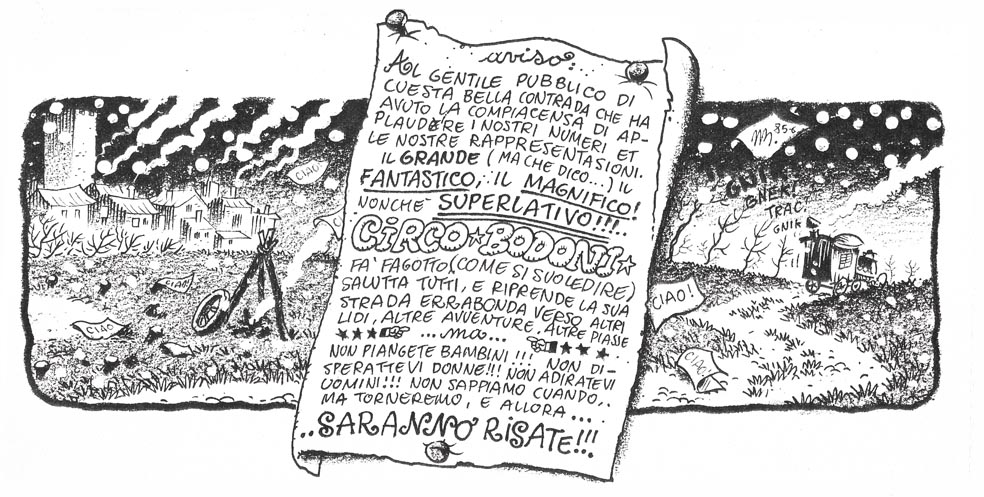 aviso...
AL GENTILE PUBBLICO DI
CUESTA BELLA CONTRADA CHE HA
AVUTO LA COMPIACENSA DI AP-
PLAUDERE I NOSTRI NUMERI ET
LE NOSTRE RAPPRESENTASIONI.
IL GRANDE (MA CHE DICO...) IL
FANTASTICO, IL MAGNIFICO!
NONCHE SUPERLATIVO!!!..
CIRCO BODONI
FA' FAGOTTO (COME SI SUOLEDIRE)
SALUTTA TUTTI, E RIPRENDE LA SUA
STRADA ERRABONDA VERSO ALTRI
LIDI, ALTRE AVVENTURE, ALTRE PIASSE
...ma...
NON PIANGETE BAMBINI!!! NON DI-
SPERATTEVI DONNE!!! NON ADIRATEVI
UOMINI!!! NON SAPPIAMO CUANDO,.
MA TORNEREMO, E ALLORA...
..SARANNO' RISATE!!!..
CIAO!
CIAO!
CIAO!
CIAO!
CIAO!
85
GNEK!
TRAC
GNIK